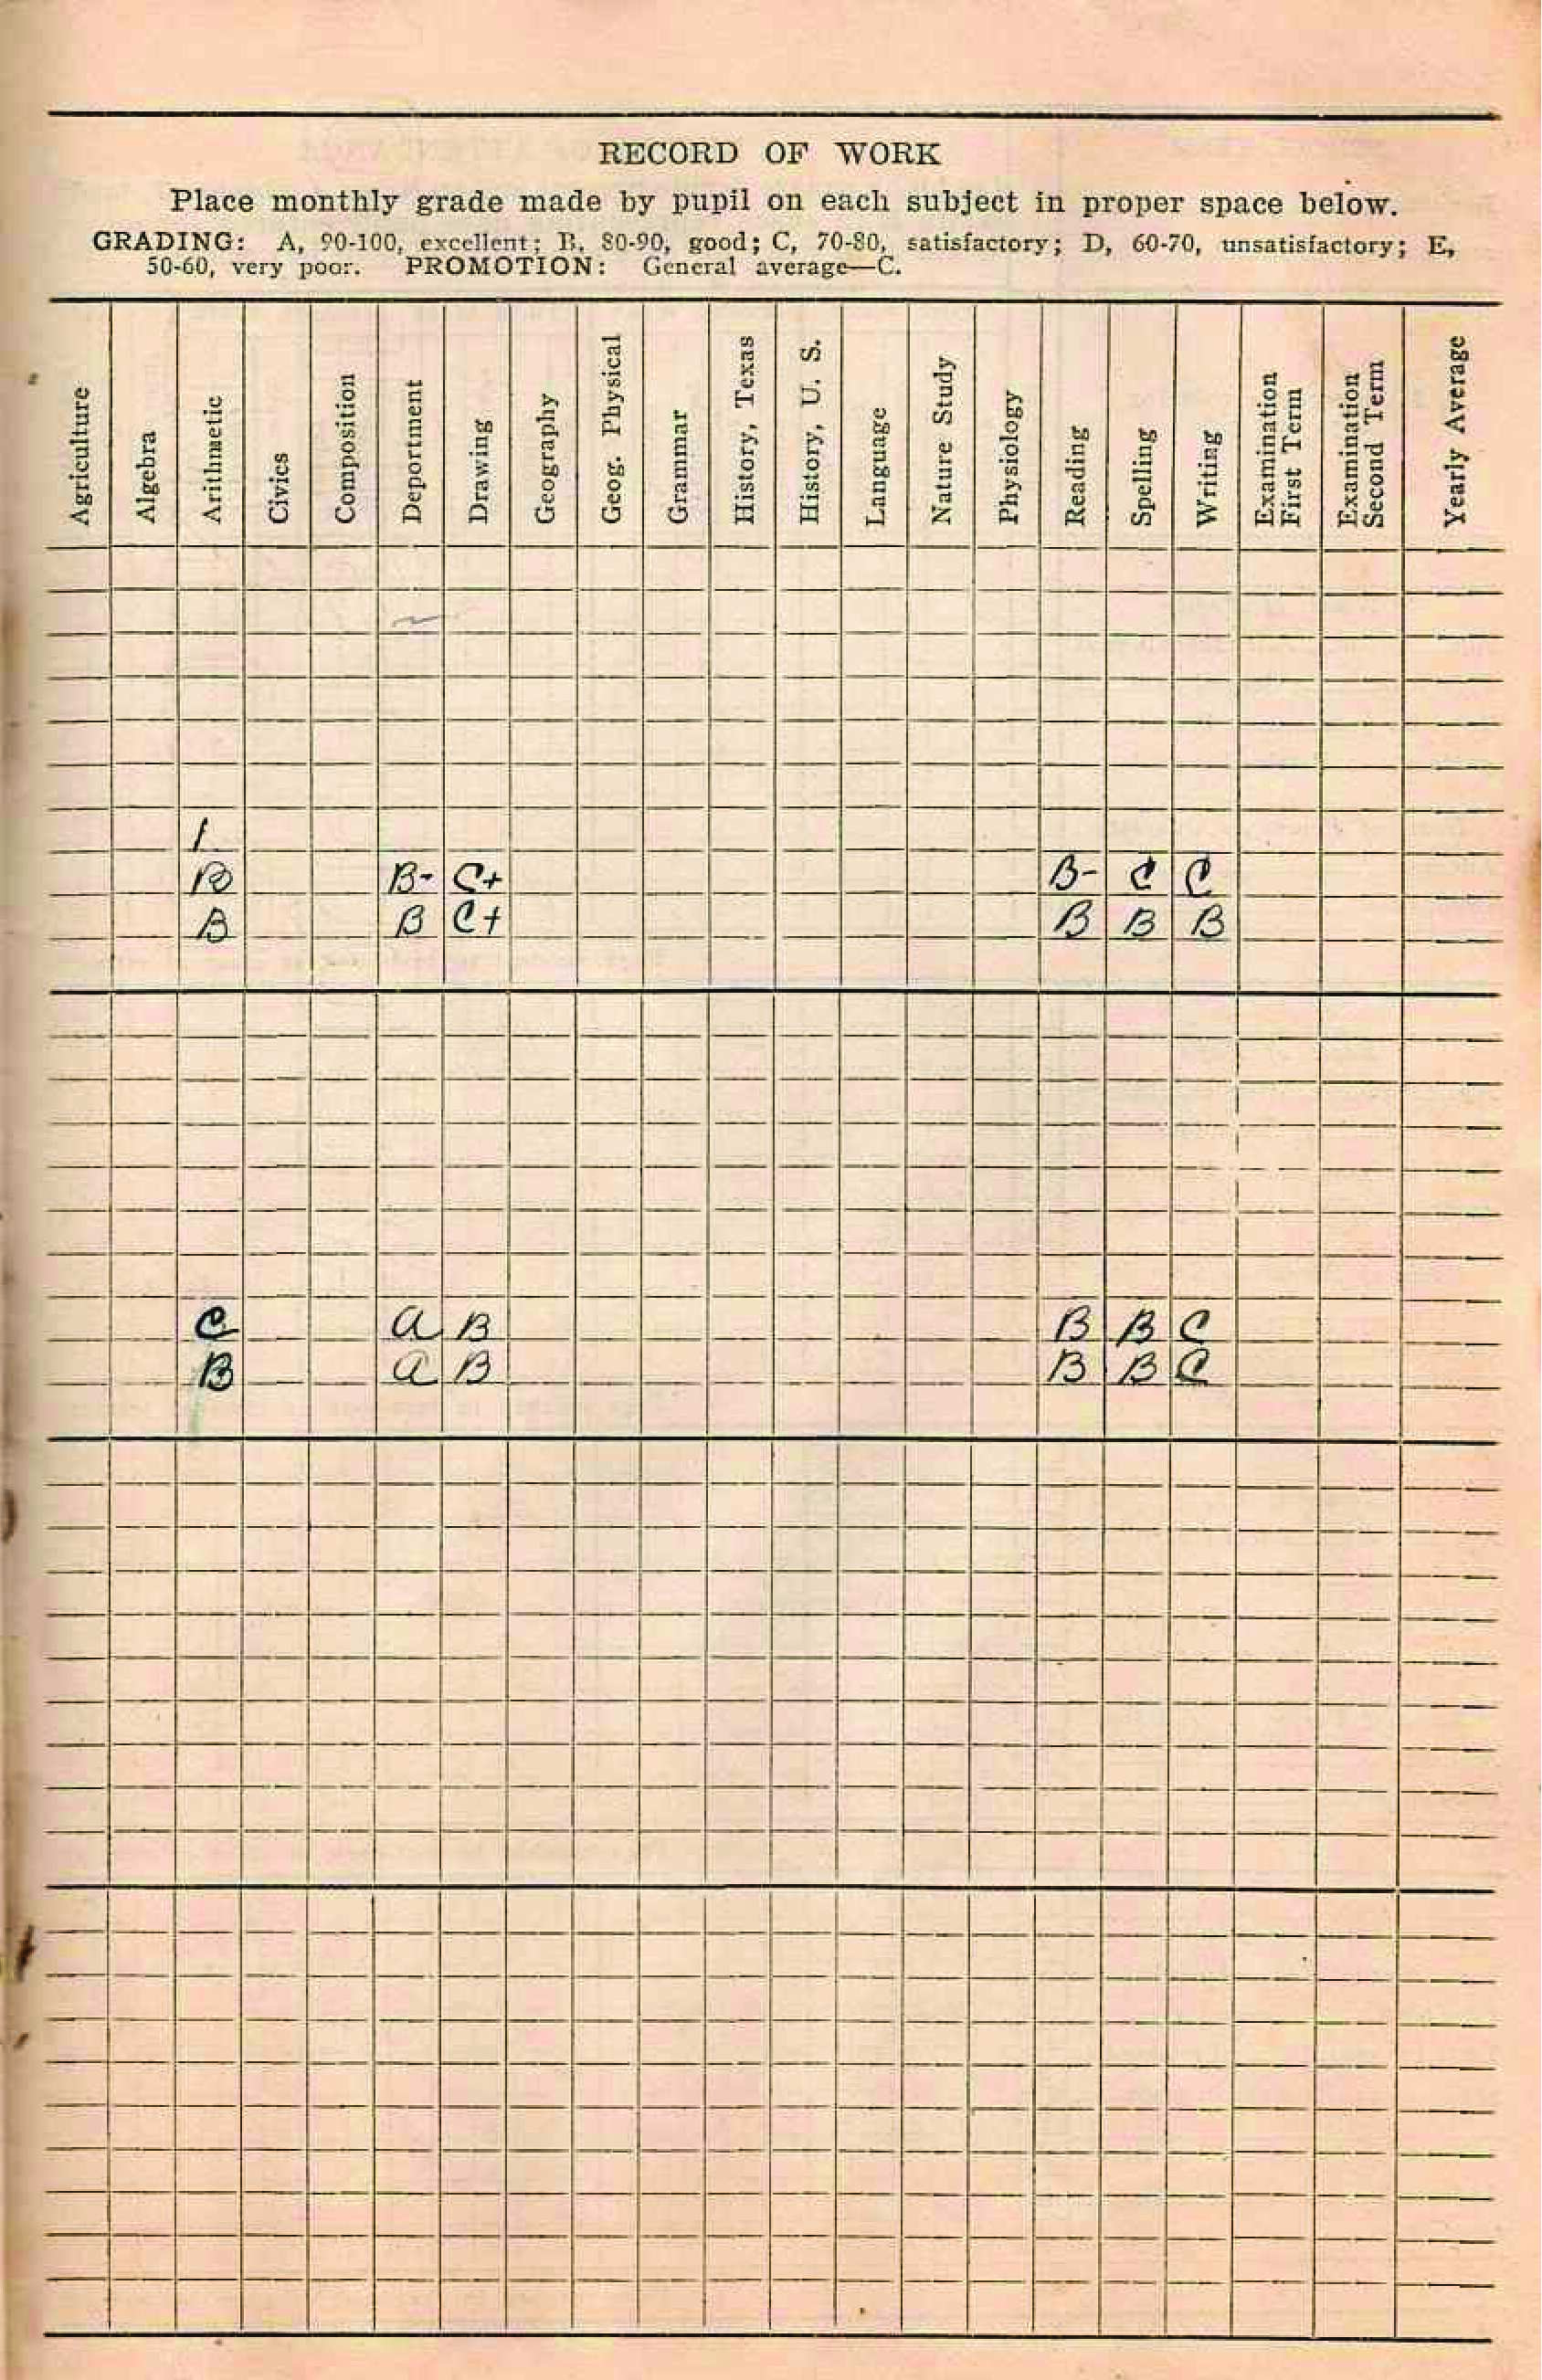 RECORD OF WORK
Place monthly grade made by pupil on each subject in proper space below.
GRADING: A, 90-100, excellent; B, 80-90, good; C, 70-80, satisfactory; D, 60-70, unsatisfactory; E,
50-60, very poor. PROMOTION: General average—C.
Agriculture
Algebra
Arithmetic
Civics
Composition
Deportment
Drawing
Geography
Geog. Physical
Grammar
History, Texas
History, U. S.
Language
Nature Study
Physiology
Reading
Spelling
Writing
Examination
First Term
Examination
Second Term
Yearly Average
B B- C+ B- C C
B B C+ B B B
C a B B B C
B a B B B C